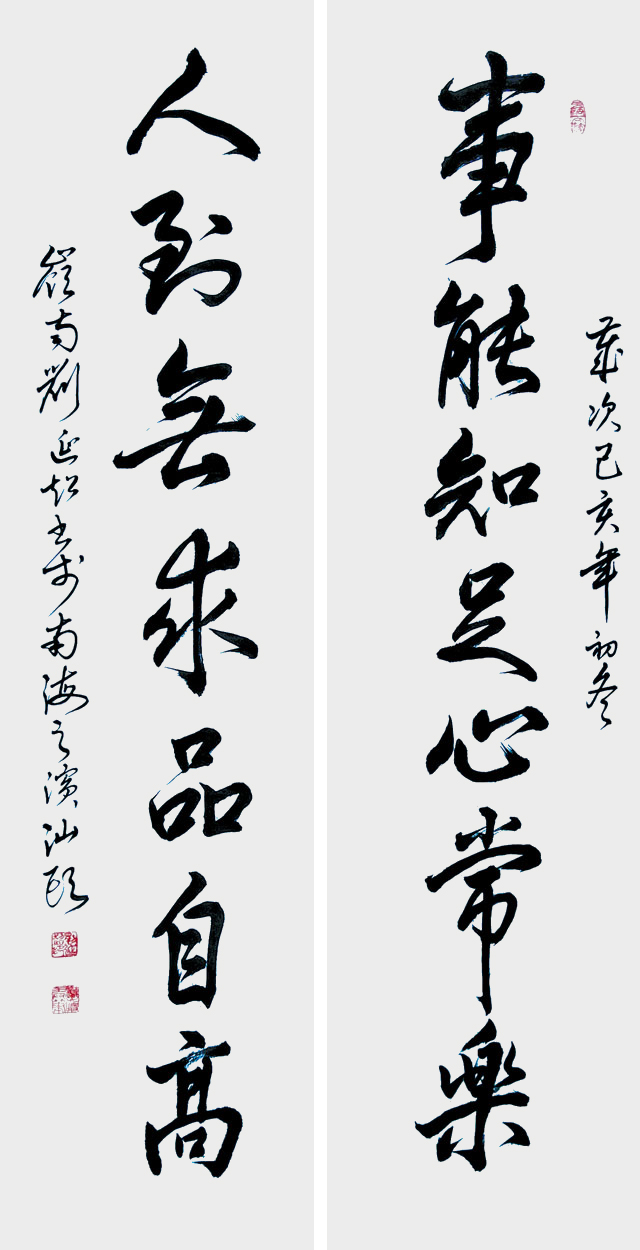 歲次己亥年初冬
事能知足心常樂
人到無求品自高
嶺南劉延超書於南海之濱汕頭